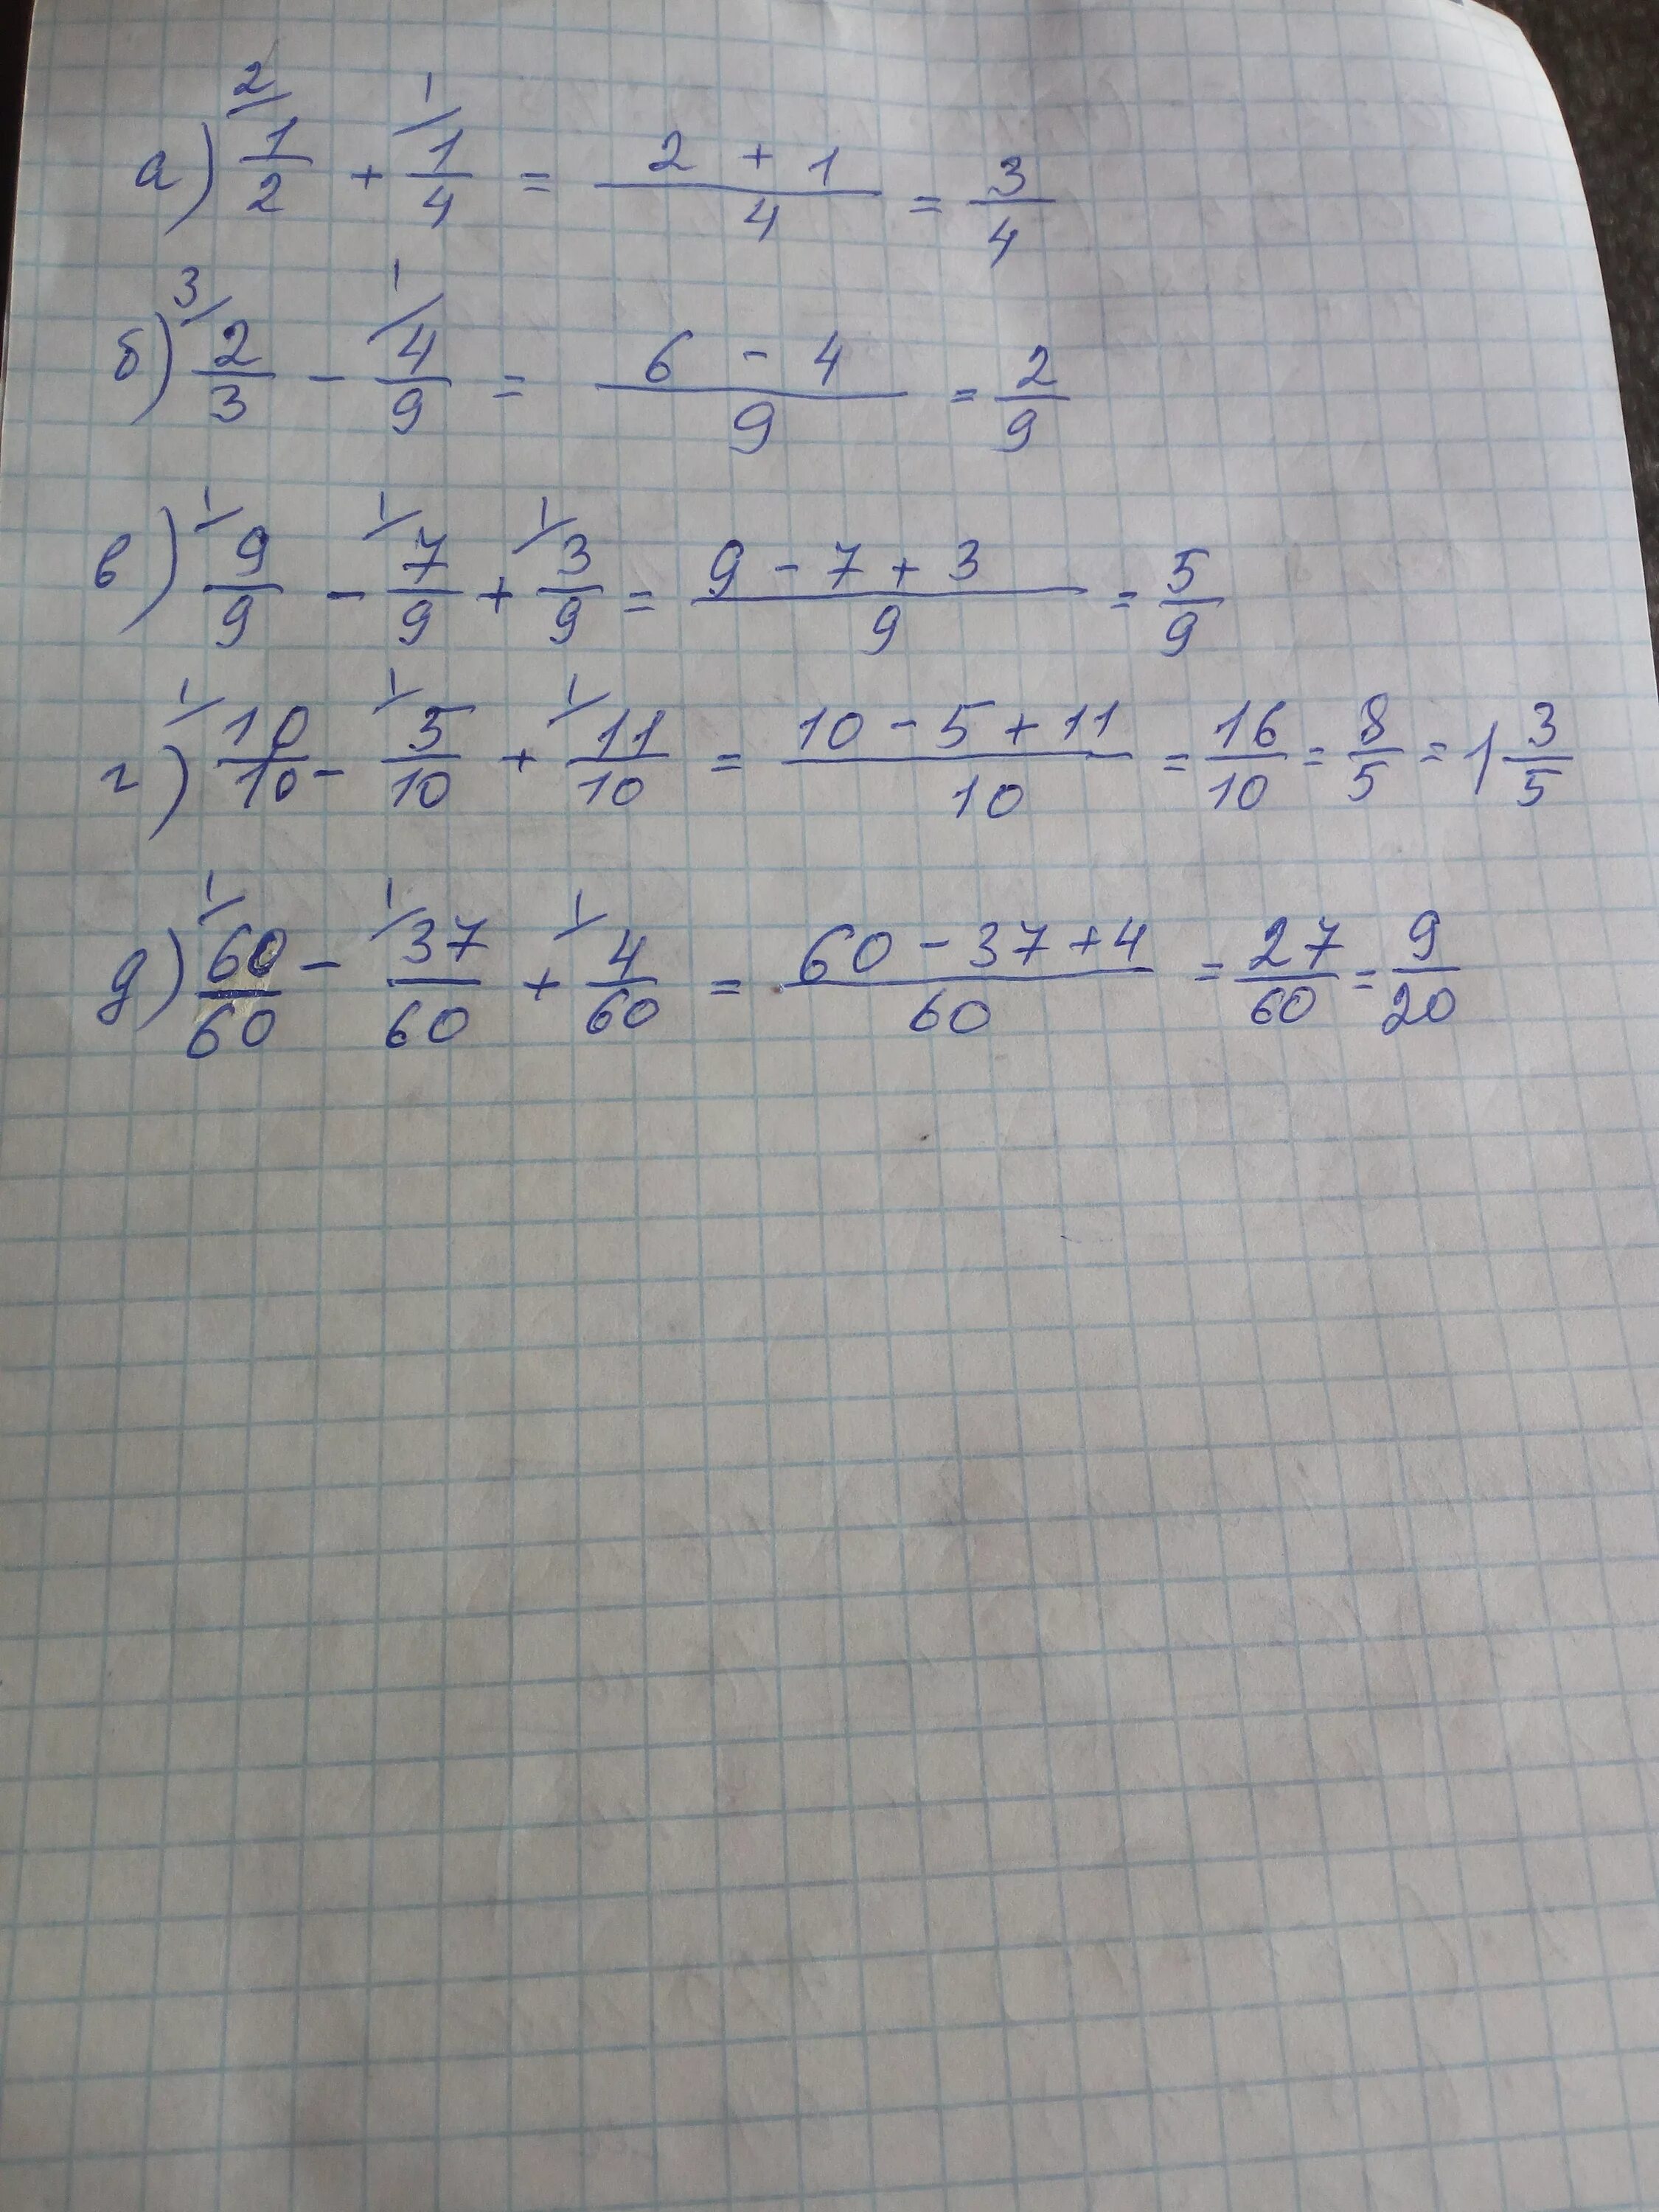 а) 2/ 1/2 + 1/ 1/4 = (2 + 1)/4 = 3/4
б) 3/ 2/3 - 1/ 4/9 = (6 - 4)/9 = 2/9
в) 1/ 9/9 - 1/ 7/9 + 1/ 3/9 = (9 - 7 + 3)/9 = 5/9
г) 1/ 10/10 - 1/ 5/10 + 1/ 11/10 = (10 - 5 + 11)/10 = 16/10 = 8/5 = 1 3/5
д) 1/ 60/60 - 1/ 37/60 + 1/ 4/60 = (60 - 37 + 4)/60 = 27/60 = 9/20